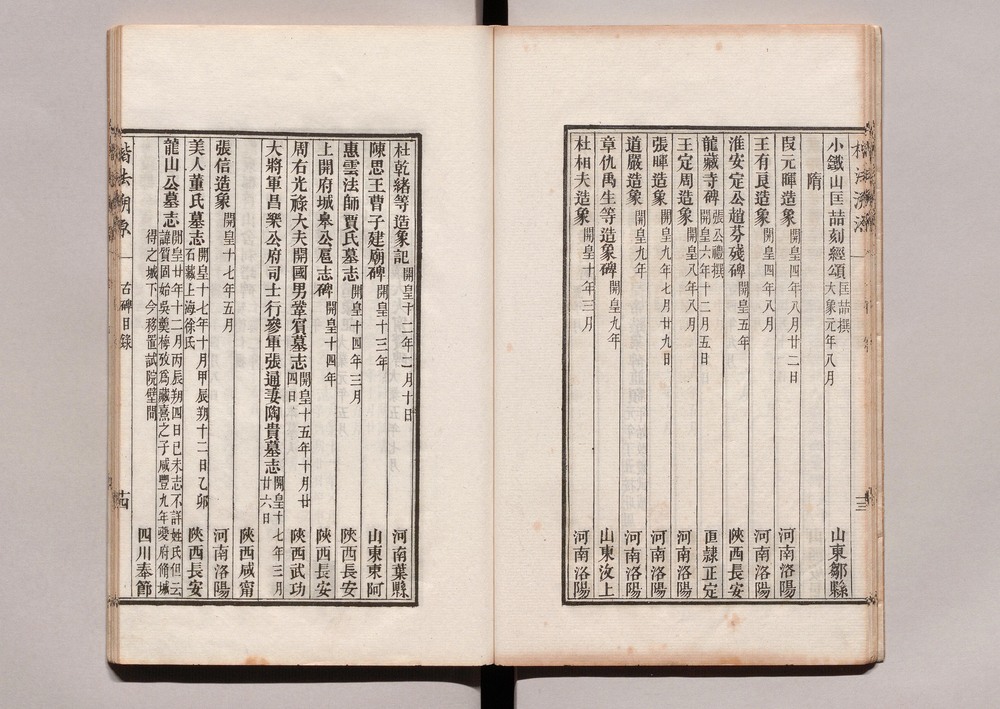 小鐵山匡喆刻經頌 匡喆撰 大象元年八月 山東鄒縣
隋
叚元暉造象 開皇四年八月廿二日 河南洛陽
王有㒵造象 開皇四年八月 河南洛陽
淮安定公趙芬殘碑 開皇五年 陝西長安
龍藏寺碑 張公禮撰 開皇六年十二月五日 直隸正定
王定周造象 開皇八年八月 河南洛陽
張暉造象 開皇九年七月廿九日 河南洛陽
道嚴造象 開皇九年 河南洛陽
章仇禹生等造象碑 開皇九年 山東汶上
杜相夫造象 開皇十年三月 河南洛陽
杜乾緒等造象記 開皇十二年二月十日 河南葉縣
陳思王曹子建廟碑 開皇十三年 山東東阿
惠雲法師賈氏墓志 開皇十四年三月 陝西長安
上開府城皋公扈志碑 開皇十四年 陝西長安
周右光祿大夫開國男鞏賓墓志 開皇十五年十月廿四日 陝西武功
大將軍昌樂公府司士行參軍張通妻陶貴墓志 開皇十七年三月廿六日
陝西咸甯
張信造象 開皇十七年五月 河南洛陽
美人董氏墓志 開皇十七年十月甲辰朔十二日乙卯 石藏上海徐氏 陝西長安
龍山公墓志 開皇廿年十二月丙辰朔四日己未志不詳姓氏但云諱質固始吳奠梅攷爲臧熹之子咸豐九年夔府脩城得之城下今移置試院壁間
四川奉節
楷法溯源 古碑目錄 十四